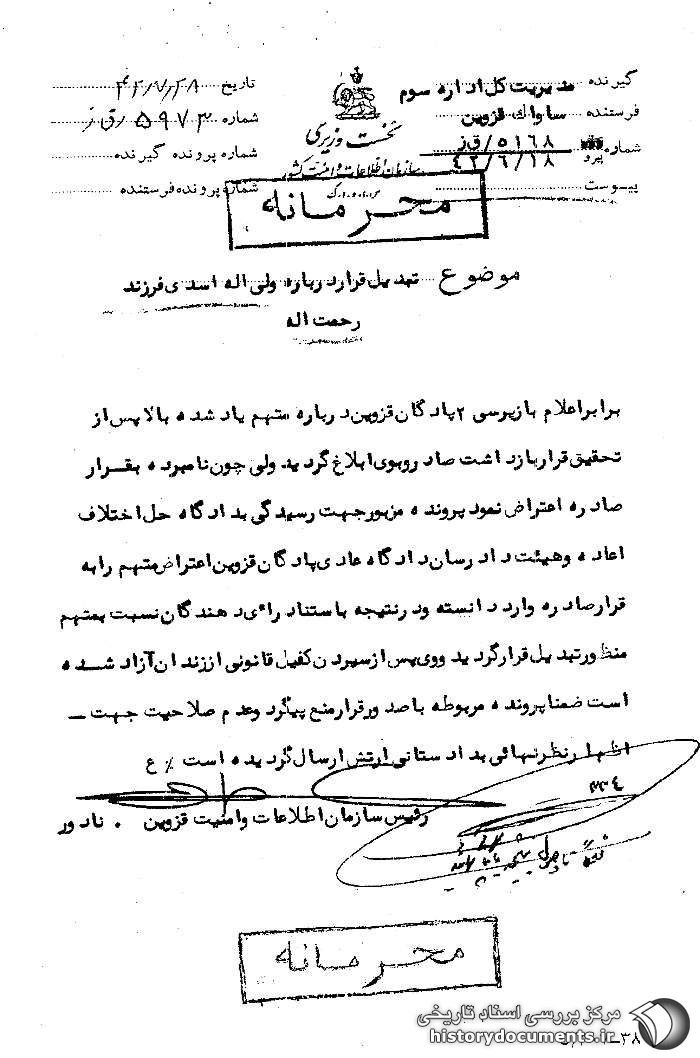 گیرنده مدیریت کل اداره سوم
فرستنده ساواک قزوین
شماره ۵۱۶۸/ق ز
پیرو ۴۲/۶/۱۸
پیوست
نخست وزیری
سازمان اطلاعات و امنیت کشور
س.ا.و.ا.ک
تاریخ ۴۲/۷/۲۸
شماره ۵۹۷۳/ق ز
شماره پرونده گیرنده
شماره پرونده فرستنده
محرمانه
موضوع تبدیل قرار درباره ولی اله اسدی فرزند
رحمت اله
برابر اعلام بازپرسی ۲ پادگان قزوین درباره متهم یاد شده بالا پس از
تحقیق قرار بازداشت صادر و بوی ابلاغ گردید ولی چون نامبرده بقرار
صادره اعتراض نمود پرونده مزبور جهت رسیدگی بدادگاه حل اختلاف
اعاده و هیئت دادرسان دادگاه عادی پادگان قزوین اعتراض متهم را به
قرار صادره وارد دانسته و در نتیجه باستناد راءی دهندگان نسبت بمتهم
منظور تبدیل قرار گردید و وی پس از سپردن کفیل قانونی از زندان آزاد شده
است ضمنا پرونده مربوطه با صدور قرار منع پیگرد و عدم صلاحیت جهت ــ
اظهار نظر نهائی بدادستانی ارتش ارسال گردیده است ٪ ع
۳۳۴
رئیس سازمان اطلاعات و امنیت قزوین . نادور
محرمانه
مرکز بررسی اسناد تاریخی
historydocuments.ir